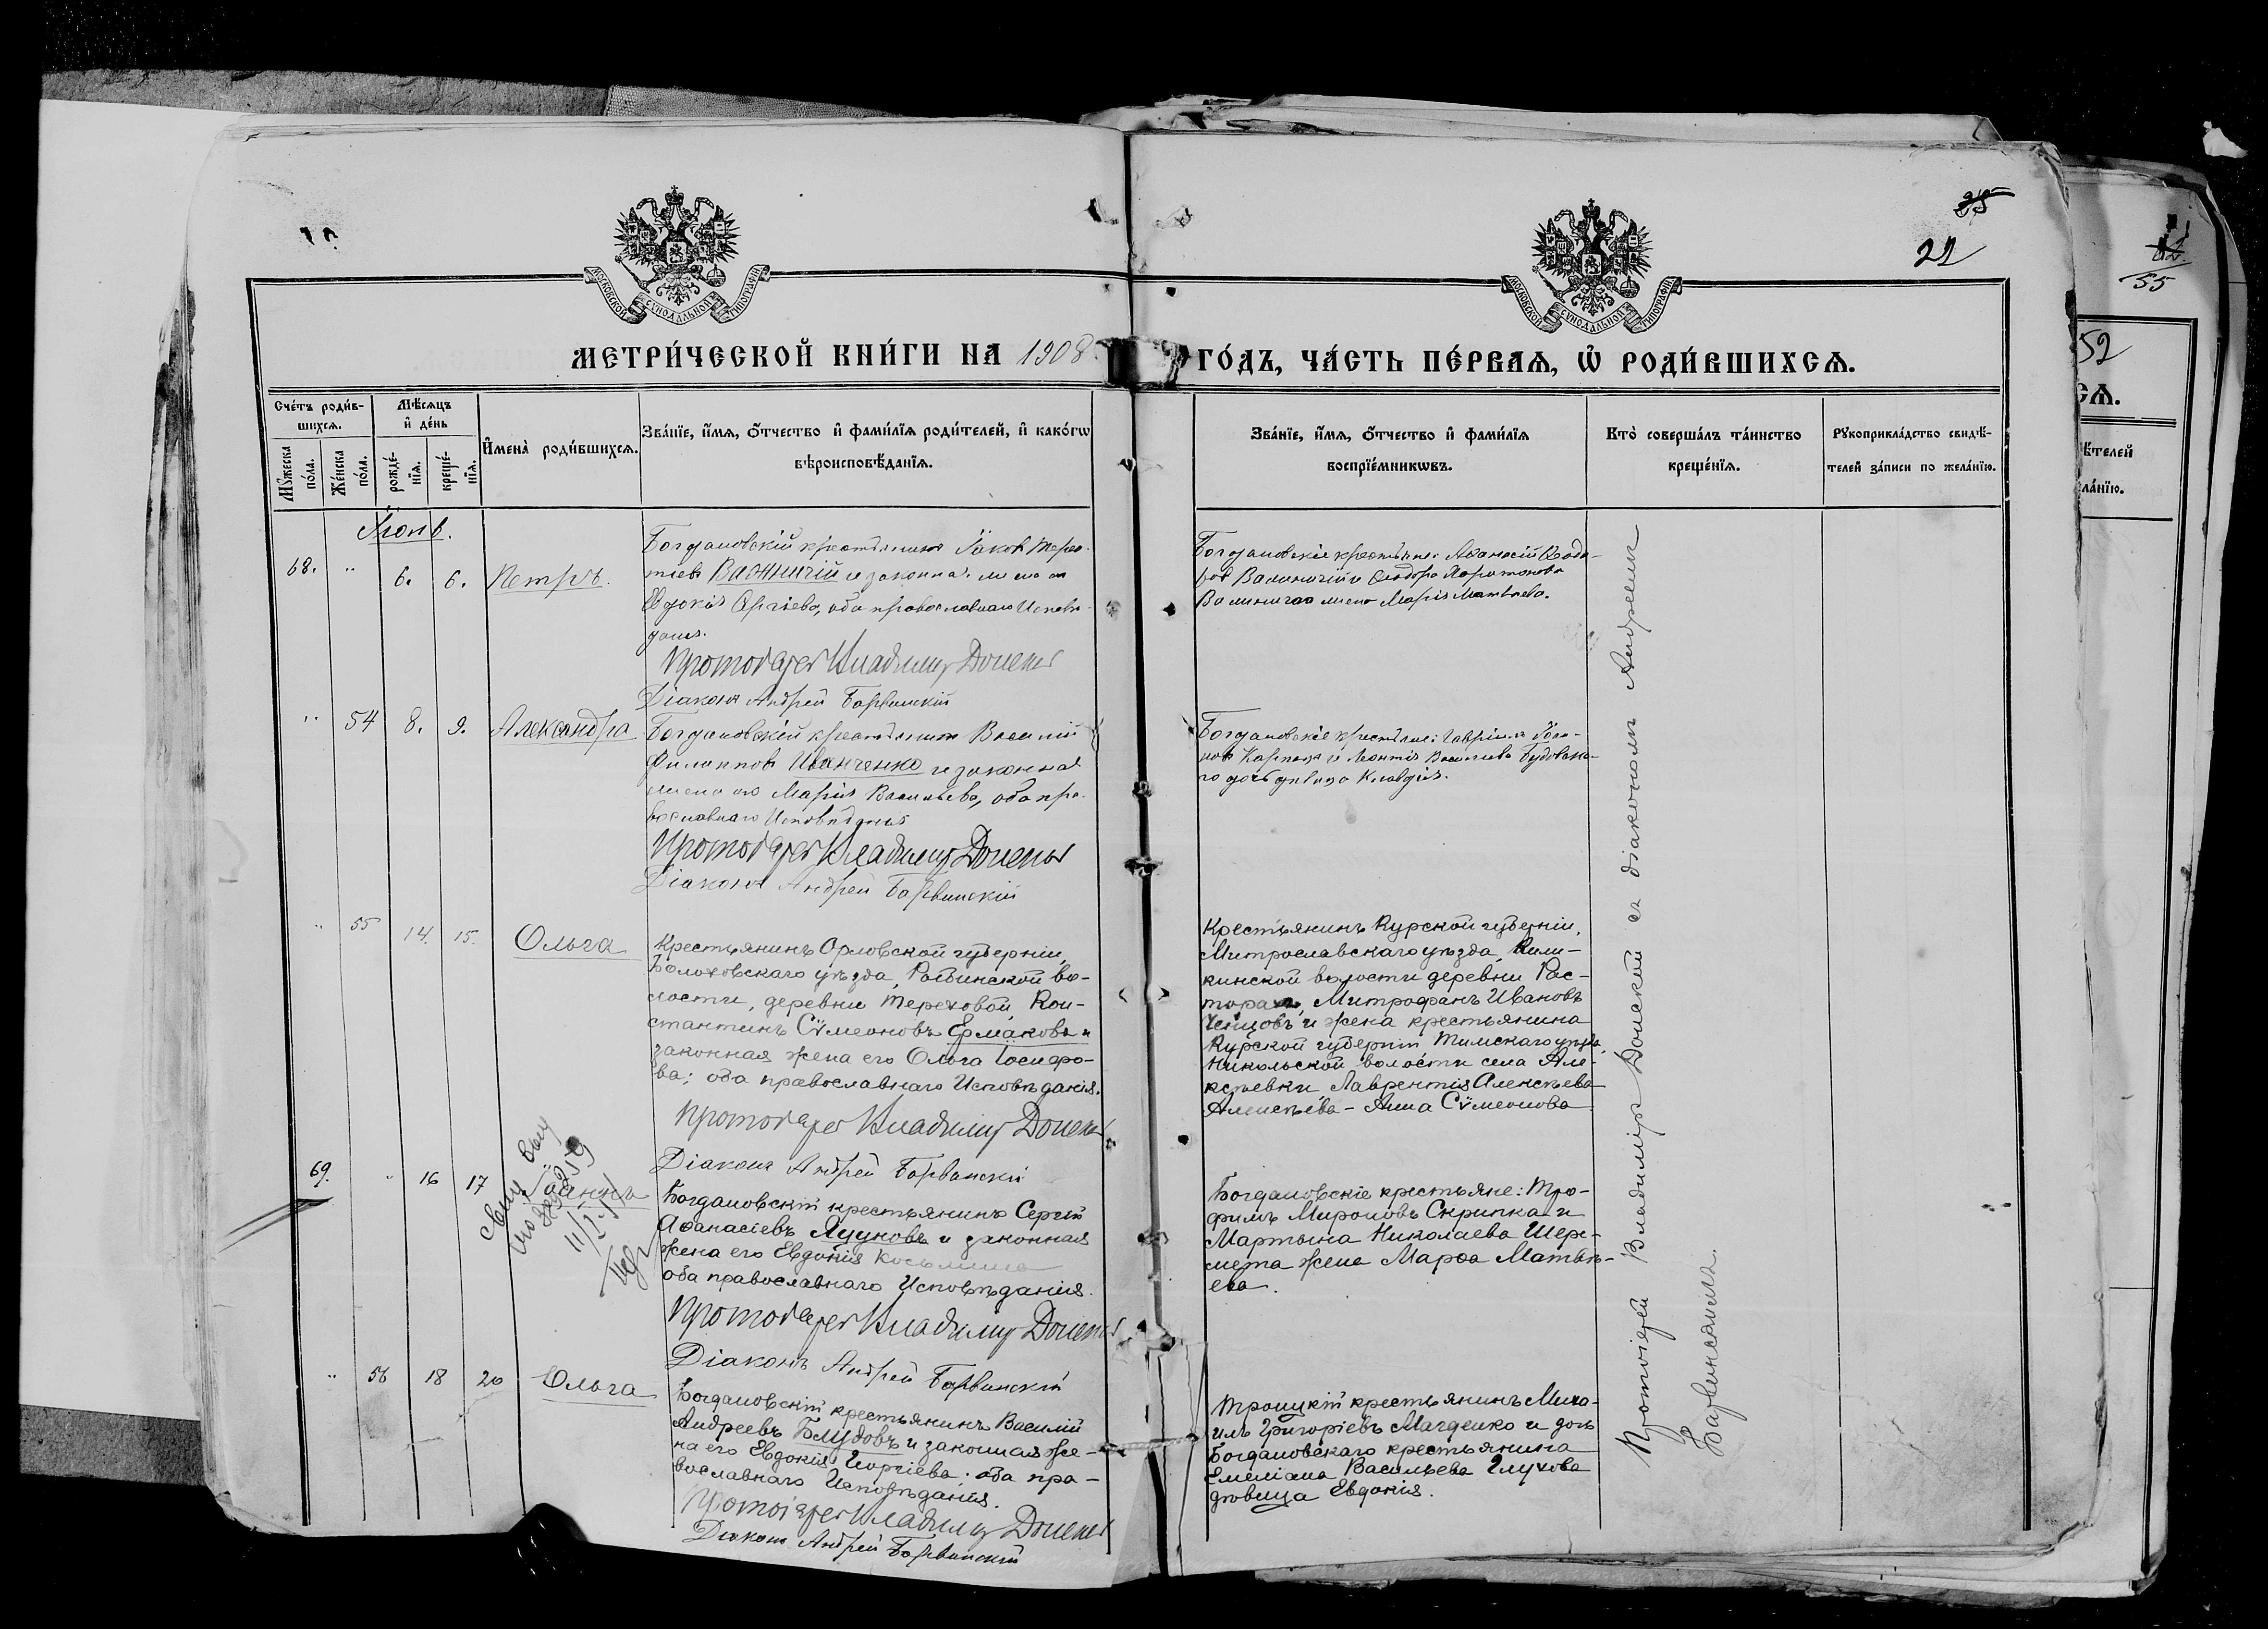 35
22
55
52
МОСКОВСКОЙ СѴНОДАЛЬНОЙ ТИПОГРАФІИ
МОСКОВСКОЙ СѴНОДАЛЬНОЙ ТИПОГРАФІИ
МЕТРИ́ЧЕСКОЙ КНИ́ГИ НА 1908
ГО́ДЪ, ЧА́СТЬ ПЕ́РВАЯ, Ѡ҆ РОДИ́ВШИХСѦ.
Сче́тъ роди́в-
шихсѧ.
Мꙋ́жеска по́ла.
Же́нска по́ла.
Мѣ́сѧцъ
и҆ де́нь
рожде́-
нїѧ.
креще́-
нїѧ.
И҆мена̀ роди́вшихсѧ.
Зва́нїе, и҆́мѧ, ѻ҆́тчество и҆ фами́лїѧ роди́телей, и҆ како́гѡ
вѣроисповѣ́данїѧ.
Зва́нїе, и҆́мѧ, ѻ҆́тчество и҆ фами́лїѧ
воспрїе́мникѡвъ.
Кто̀ соверша́лъ та́инство
креще́нїѧ.
Рꙋкоприкла́дство свидѣ́-
телей за́писи по жела́нїю.
Іюнь.
68. " 6. 6. Петръ.
Богдановскій крестьянинъ Іаковъ Терен-
тіевъ и законная жена его
Евдокія Сергіева, оба православнаго Исповѣ-
данія.
Протоіерей Владиміръ Донской
Діаконъ Андрей Барвинскій
Богдановскіе крестьяне: Аѳанасій Ѳеодо-
ровъ и Ѳеодора Харитонова
жена Марія Матвѣева.
" 54 8. 9. Александра
Богдановскій крестьянинъ Василій
Филипповъ Иванченко и законная
жена его Марія Васильева, оба пра-
вославнаго Исповѣданія
Протоіерей Владиміръ Донской
Діаконъ Андрей Барвинскій
Богдановскіе крестьяне: Гавріилъ
новъ и Леонтія Васильева
го дочь дѣвица Клавдія.
" 55 14. 15. Ольга
Крестьянинъ Орловской губерніи,
Болховскаго уѣзда, во-
лости, деревни Тереховой, Кон-
стантинъ Сѵмеоновъ Ермаковъ и
законная жена его Ольга Іосифо-
ва; оба православнаго Исповѣданія.
Протоіерей Владиміръ Донской
Діаконъ Андрей Барвинскій
Крестьянинъ Курской губерніи,
Митрославскаго уѣзда,
кинской волости деревни Рас-
Митрофанъ Ивановъ
и жена крестьянина
Курской губерніи Тимскаго уѣзда,
Никольской волости села Але-
ксѣевки Лаврентія Алексѣева
Алексѣева – Анна Сѵмеонова
69. " 16 17 Іоаннъ
Богдановскій крестьянинъ Сергій
Аѳанасіевъ и законная
жена его Евдокія Косьмина
оба православнаго Исповѣданія.
Протоіерей Владиміръ Донской
Діаконъ Андрей Барвинскій
Богдановскіе крестьяне: Тро-
фимъ Мироновъ Скрипка и
Мартына Николаева Шере-
мета жена Марѳа Матвѣ-
ева.
" 56 18 20 Ольга
Богдановскій крестьянинъ Василій
Андреевъ Блудовъ и законная же-
на его Евдокія Георгіева; оба пра-
вославнаго Исповѣданія.
Протоіерей Владиміръ Донской
Діаконъ Андрей Барвинскій
Троицкій крестьянинъ Миха-
илъ Григоріевъ Магденко и дочь
Богдановскаго крестьянина
Емеліана Васильева Глухова
дѣвица Евдокія.
Протоіерей Владиміръ Донской съ діакономъ Андреемъ
Барвинскимъ.